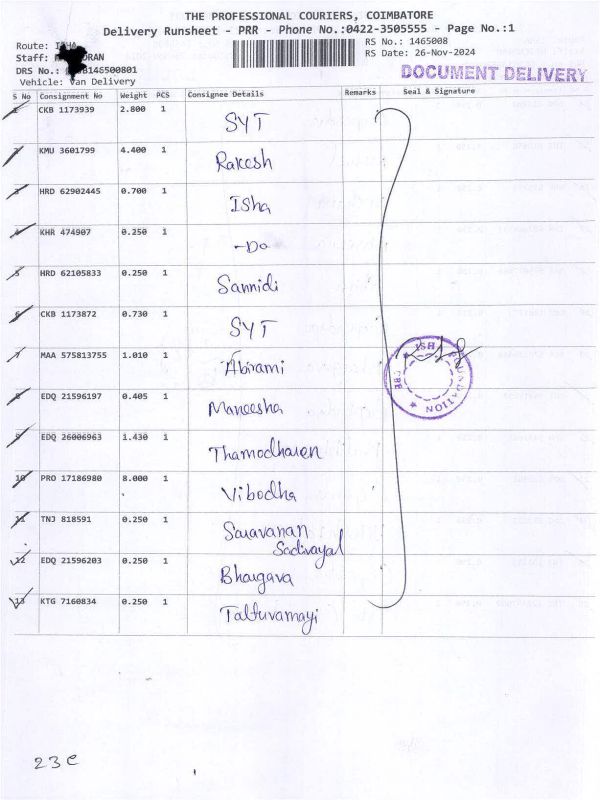 THE PROFESSIONAL COURIERS, COIMBATORE
Delivery Runsheet - PRR - Phone No.:0422-3505555 - Page No.:1
Route: ISHA
RS No.: 1465008
Staff:
RS Date: 26-Nov-2024
DRS No.:
DOCUMENT DELIVERY
Vehicle: Van Delivery
S No Consignment No Weight PCS Consignee Details Remarks Seal & Signature
1 CKB 1173939 2.800 1 SYT
2 KMU 3601799 4.400 1 Rakesh
3 HRD 62902445 0.700 1 ISha
4 KHR 474907 0.250 1 -Do
5 HRD 62105833 0.250 1 Sannidi
6 CKB 1173872 0.730 1 SYT
7 MAA 575813755 1.010 1 Abirami
8 EDQ 21596197 0.405 1 Maneesha
9 EDQ 26006963 1.430 1 Thamodharen
10 PRO 17186980 8.000 1 Vibodha
11 TNJ 818591 0.250 1 Saravanan
Sadivayal
12 EDQ 21596203 0.250 1 Bhargava
13 KTG 7160834 0.250 1 Tattuvamayi
ISHA FOUNDATION CBE
23C